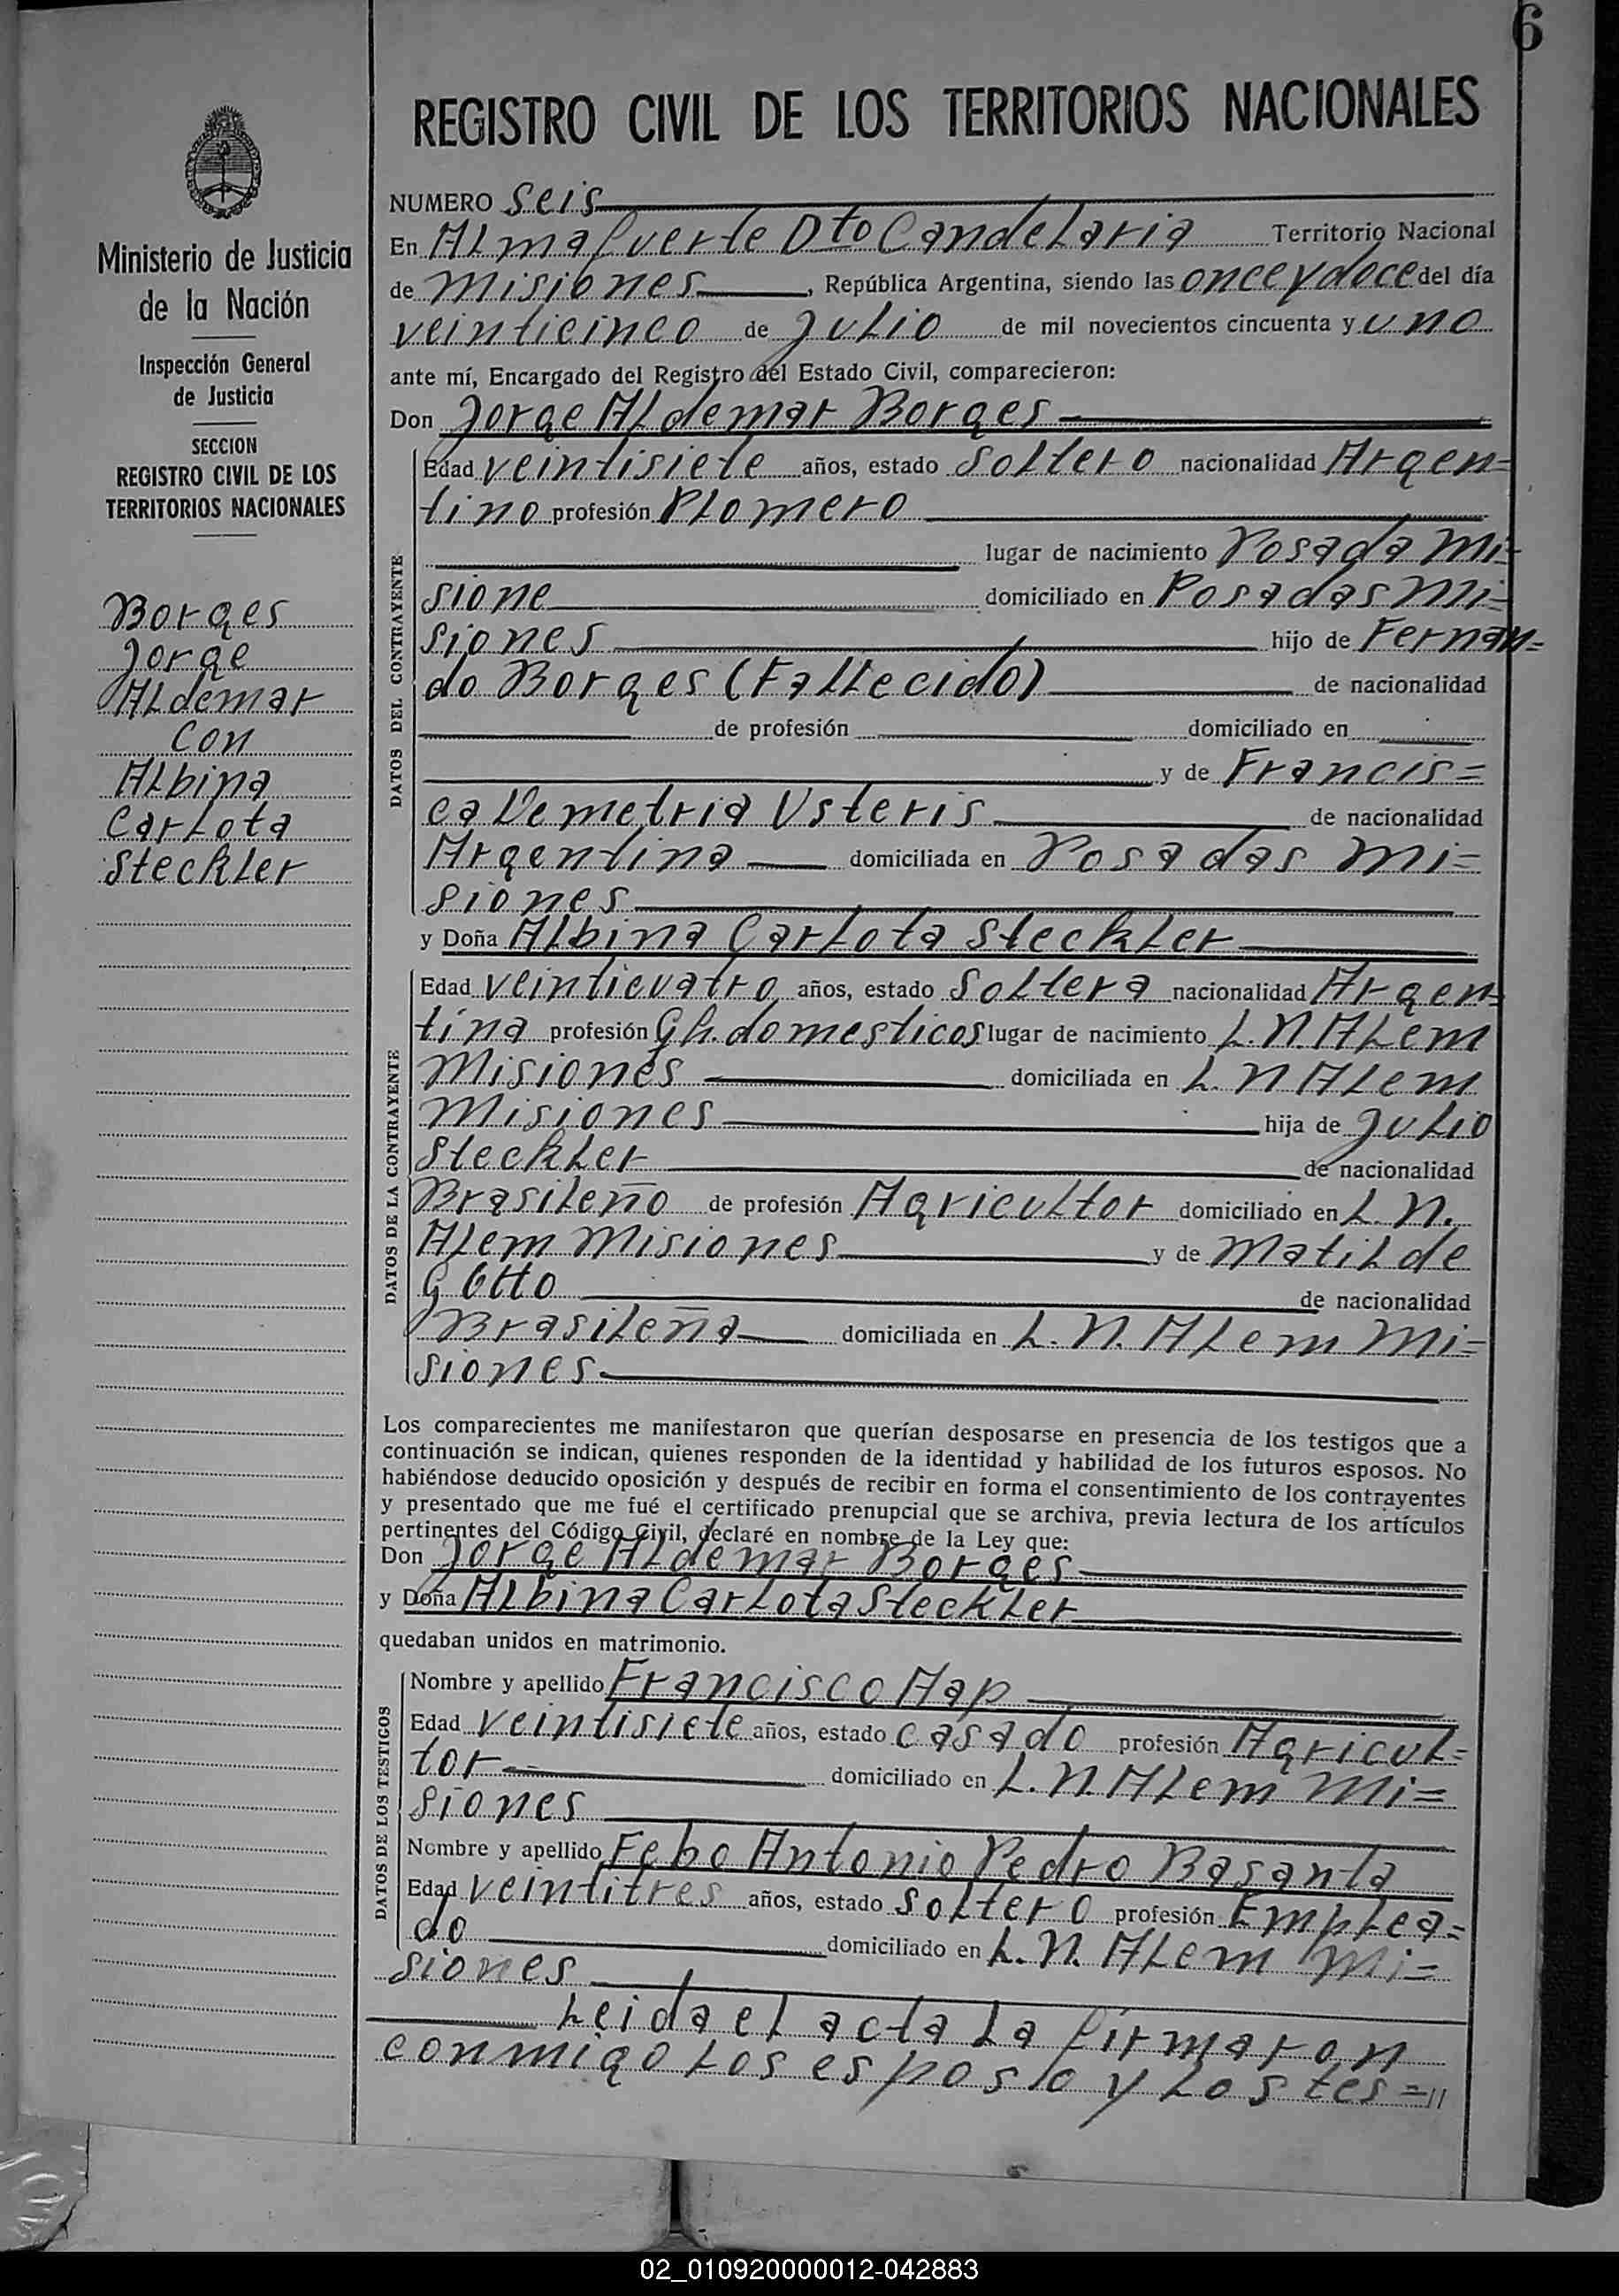 6
REGISTRO CIVIL DE LOS TERRITORIOS NACIONALES
Ministerio de Justicia
de la Nación
Inspección General
de Justicia
SECCION
REGISTRO CIVIL DE LOS
TERRITORIOS NACIONALES
Borges
Jorge
Aldemar
con
Albina
Carlota
Steckler
NUMERO seis
En Almafuerte Dto Candelaria Territorio Nacional
de Misiones, República Argentina, siendo las once y doce del día
veinticinco de Julio de mil novecientos cincuenta y uno
ante mí, Encargado del Registro del Estado Civil, comparecieron:
Don Jorge Aldemar Borges
DATOS DEL CONTRAYENTE
Edad veintisiete años, estado Soltero nacionalidad Argen=
tino profesión Plomero
lugar de nacimiento Posada Mi=
sione domiciliado en Posadas Mi=
siones hijo de Fernan=
do Borges (Fallecido) de nacionalidad
de profesión domiciliado en
y de Francis=
ca Demetria Usteris de nacionalidad
Argentina domiciliada en Posadas Mi=
siones
y Doña Albina Carlota Steckler
DATOS DE LA CONTRAYENTE
Edad veinticuatro años, estado Soltera nacionalidad Argen=
tina profesión Qh. domesticos lugar de nacimiento L. N. Alem
Misiones domiciliada en L. N Alem
Misiones hija de Julio
Steckler de nacionalidad
Brasileño de profesión Agricultor domiciliado en L. N.
Alem Misiones y de Matilde
Gótto de nacionalidad
Brasileña domiciliada en L. N. Alem Mi=
siones
Los comparecientes me manifestaron que querían desposarse en presencia de los testigos que a
continuación se indican, quienes responden de la identidad y habilidad de los futuros esposos. No
habiéndose deducido oposición y después de recibir en forma el consentimiento de los contrayentes
y presentado que me fué el certificado prenupcial que se archiva, previa lectura de los artículos
pertinentes del Código Civil, declaré en nombre de la Ley que:
Don Jorge Aldemar Borges
y Doña Albina Carlota Steckler
quedaban unidos en matrimonio.
DATOS DE LOS TESTIGOS
Nombre y apellido Francisco Hap
Edad veintisiete años, estado casado profesión Agricul=
tor domiciliado en L. N. Alem Mi=
siones
Nombre y apellido Febo Antonio Pedro Basanta
Edad veintitres años, estado soltero profesión Emplea=
do domiciliado en L. N. Alem Mi=
siones
Leida el acta la firmaron
conmigo los esposo y los tes="
02_010920000012-042883